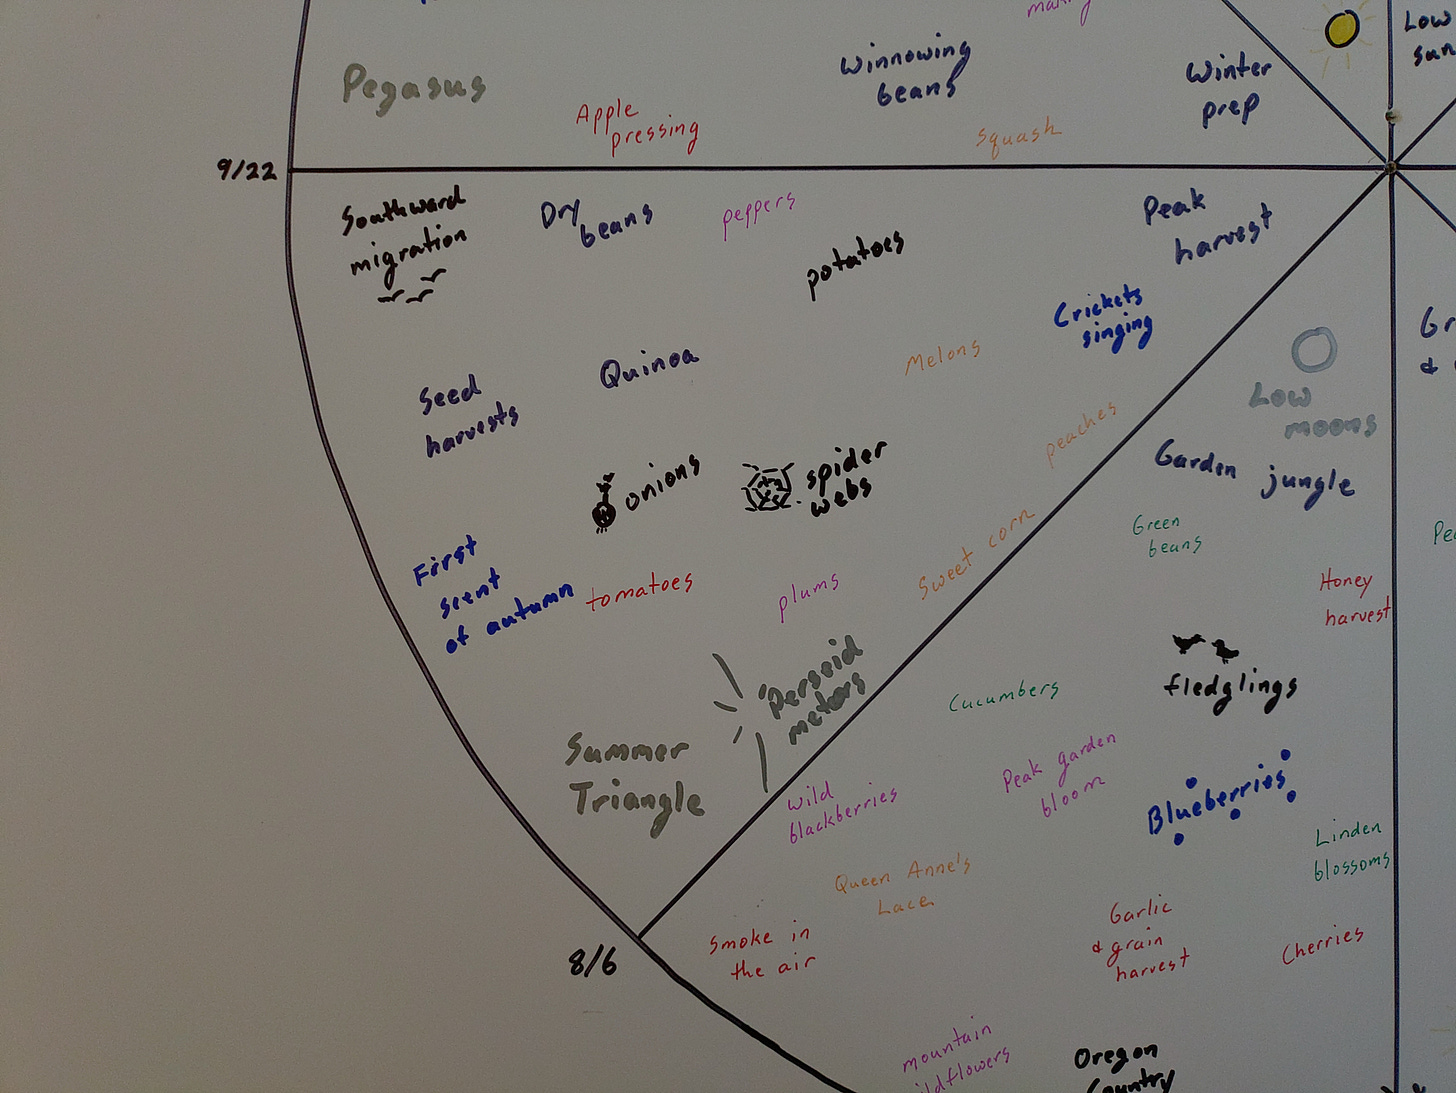 making
Low
sun
Pegasus
Winnowing
beans
Winter
prep
Apple
pressing
squash
9/22
Southward
migration
Dry
beans
peppers
potatoes
Peak
harvest
Crickets
singing
Melons
Quinoa
Seed
harvests
peaches
onions
spider
webs
Sweet corn
First
scent
of autumn
tomatoes
plums
Perseid
meteors
Summer
Triangle
8/6
Low
moons
Garden jungle
Green
beans
Honey
harvest
fledglings
Cucumbers
Peak garden
bloom
wild
blackberries
Blueberries
Linden
blossoms
Queen Anne's
Lace
Smoke in
the air
Garlic
& grain
harvest
Cherries
mountain
wildflowers
Oregon
Country